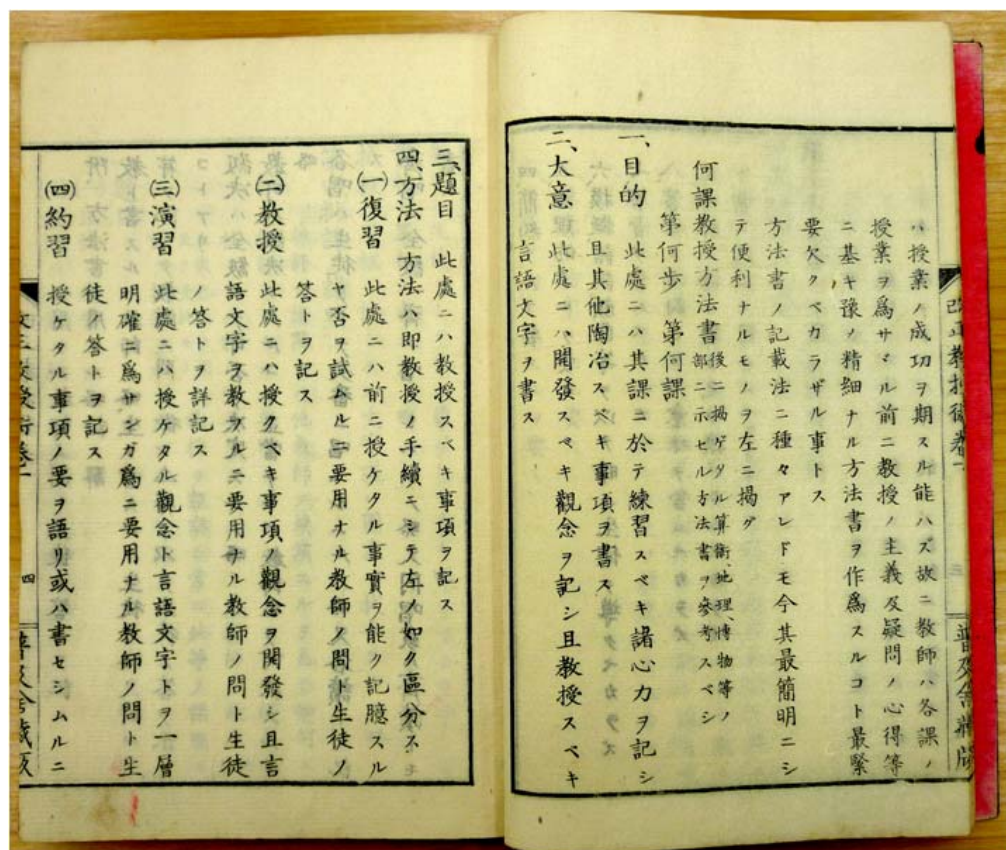 ハ授業ノ成功ヲ期スル能ハズ故ニ教師ハ各課ノ
授業ヲ爲サヾル前ニ教授ノ主義及疑問ノ心得等
ニ基キ豫ノ精細ナル方法書ヲ作爲スルコト最緊
要欠クベカラザル事トス
方法書ノ記載法ニ種々アレドモ今其最簡明ニシ
テ便利ナルモノヲ左ニ掲グ
何課教授方法書後ニ掲ゲタル算術、地理、博物等ノ
部ニ示セル方法書ヲ參考スベシ
第何步 第何課
一、目的 此處ニハ其課ニ於テ練習スベキ諸心力ヲ記シ
且其他陶冶スベキ事項ヲ書ス
二、大意 此處ニハ開發スベキ觀念ヲ記シ且教授スベキ
言語文字ヲ書ス
改正教授術卷一
三
普及舍藏版
三、題目 此處ニハ教授スベキ事項ヲ記ス
四、方法 方法ハ即教授ノ手續ニシテ左ノ如ク區分ス
㈠復習 此處ニハ前ニ授ケタル事實ヲ能ク記臆スル
ヤ否ヲ試ムルニ要用ナル教師ノ問ト生徒ノ
答トヲ記ス
㈡教授 此處ニハ授クベキ事項ノ觀念ヲ開發シ且言
語文字ヲ教フルニ要用ナル教師ノ問ト生徒
ノ答トヲ詳記ス
㈢演習 此處ニハ授ケタル觀念ト言語文字トヲ一層
明確ニ爲サンガ爲ニ要用ナル教師ノ問ト生
徒ノ答トヲ記ス
㈣約習 授ケタル事項ノ要ヲ語リ或ハ書セシムルニ
改正教授術卷一
四
普及舍藏版